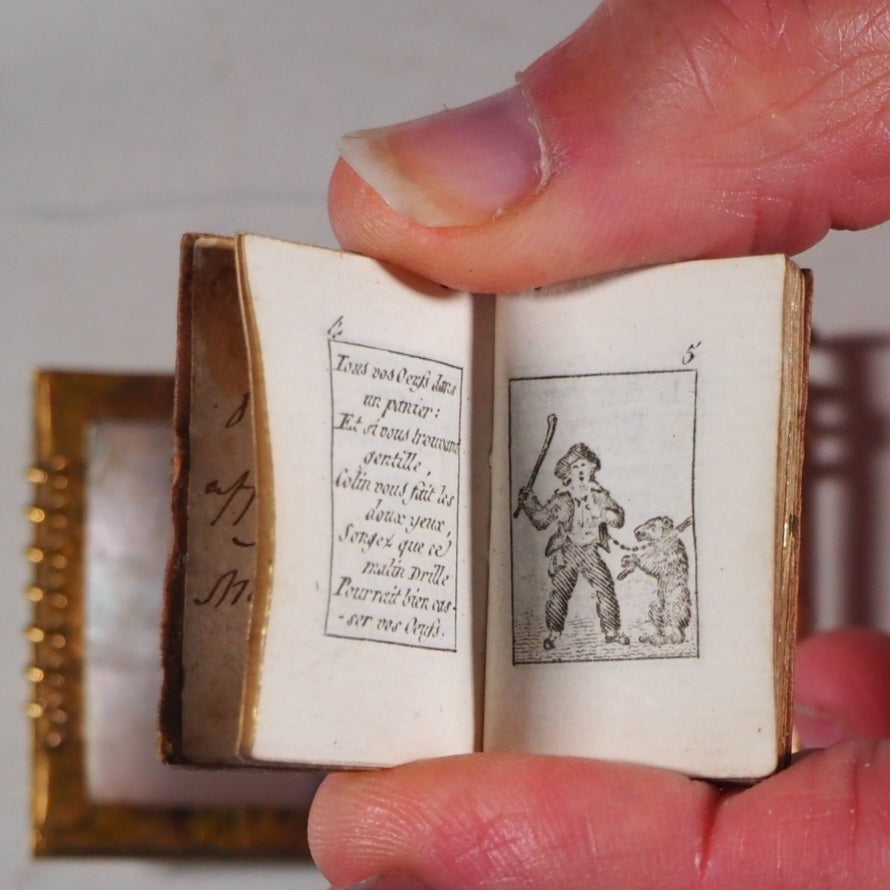 4.
Tous vos Oeufs dans
un panier:
Et si vous trouvant
gentille,
Colin vous fait les
doux yeux,
Songez que ce
malin Drille
Pourrait bien cas-
-ser vos Oeufs.
5